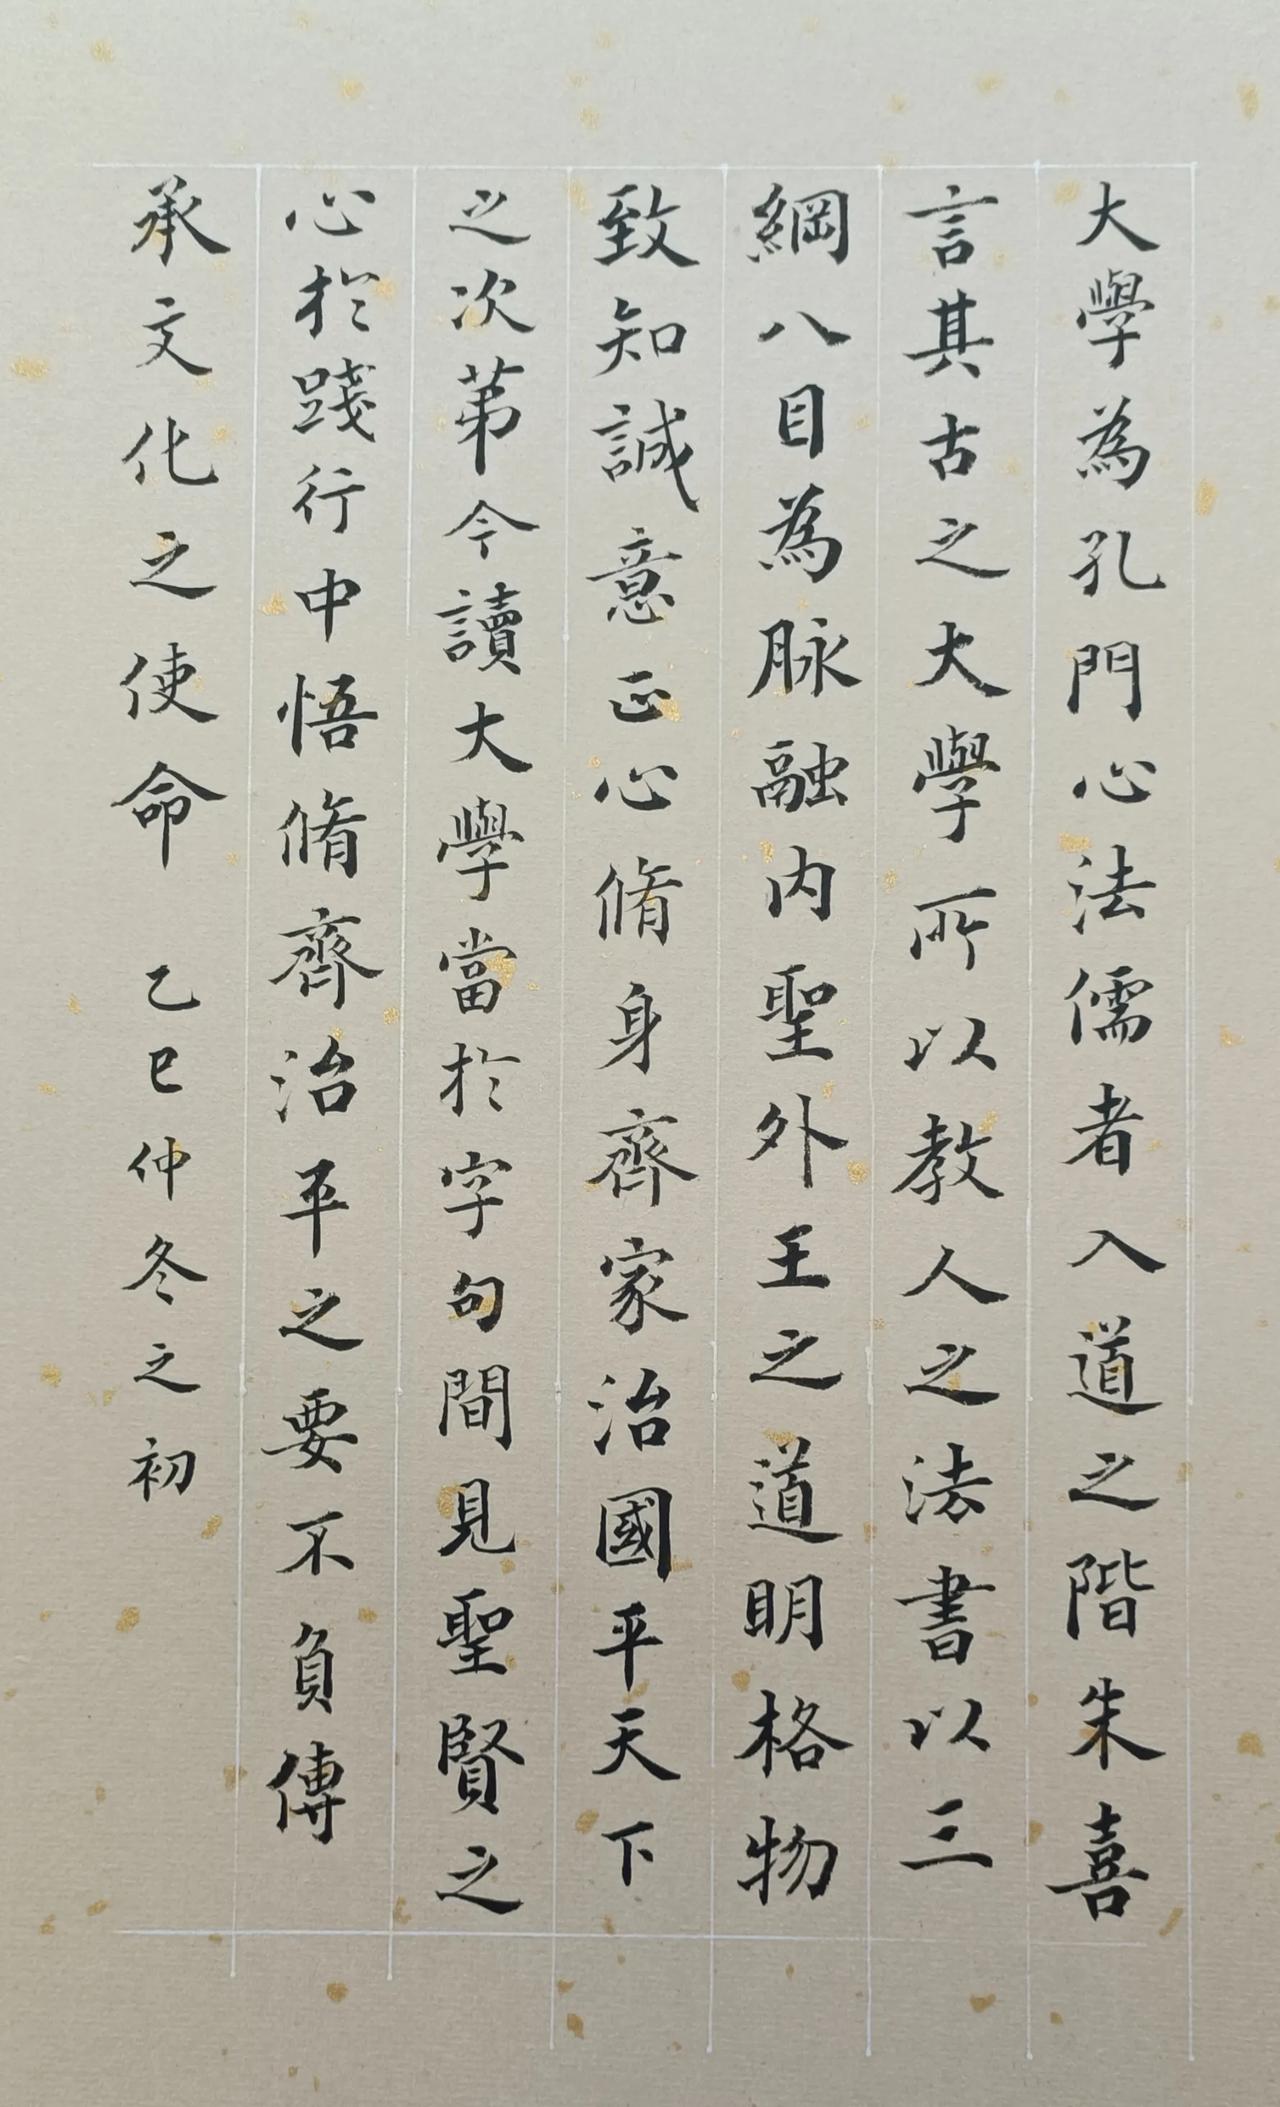 大學為孔門心法儒者入道之階朱喜
言其古之大學所以教人之法書以三
綱八目為脉融内聖外王之道明格物
致知誠意正心脩身齊家治國平天下
之次苐今讀大學當於字句間見聖賢之
心於踐行中悟脩齊治平之要不負傳
承文化之使命 乙巳仲冬之初